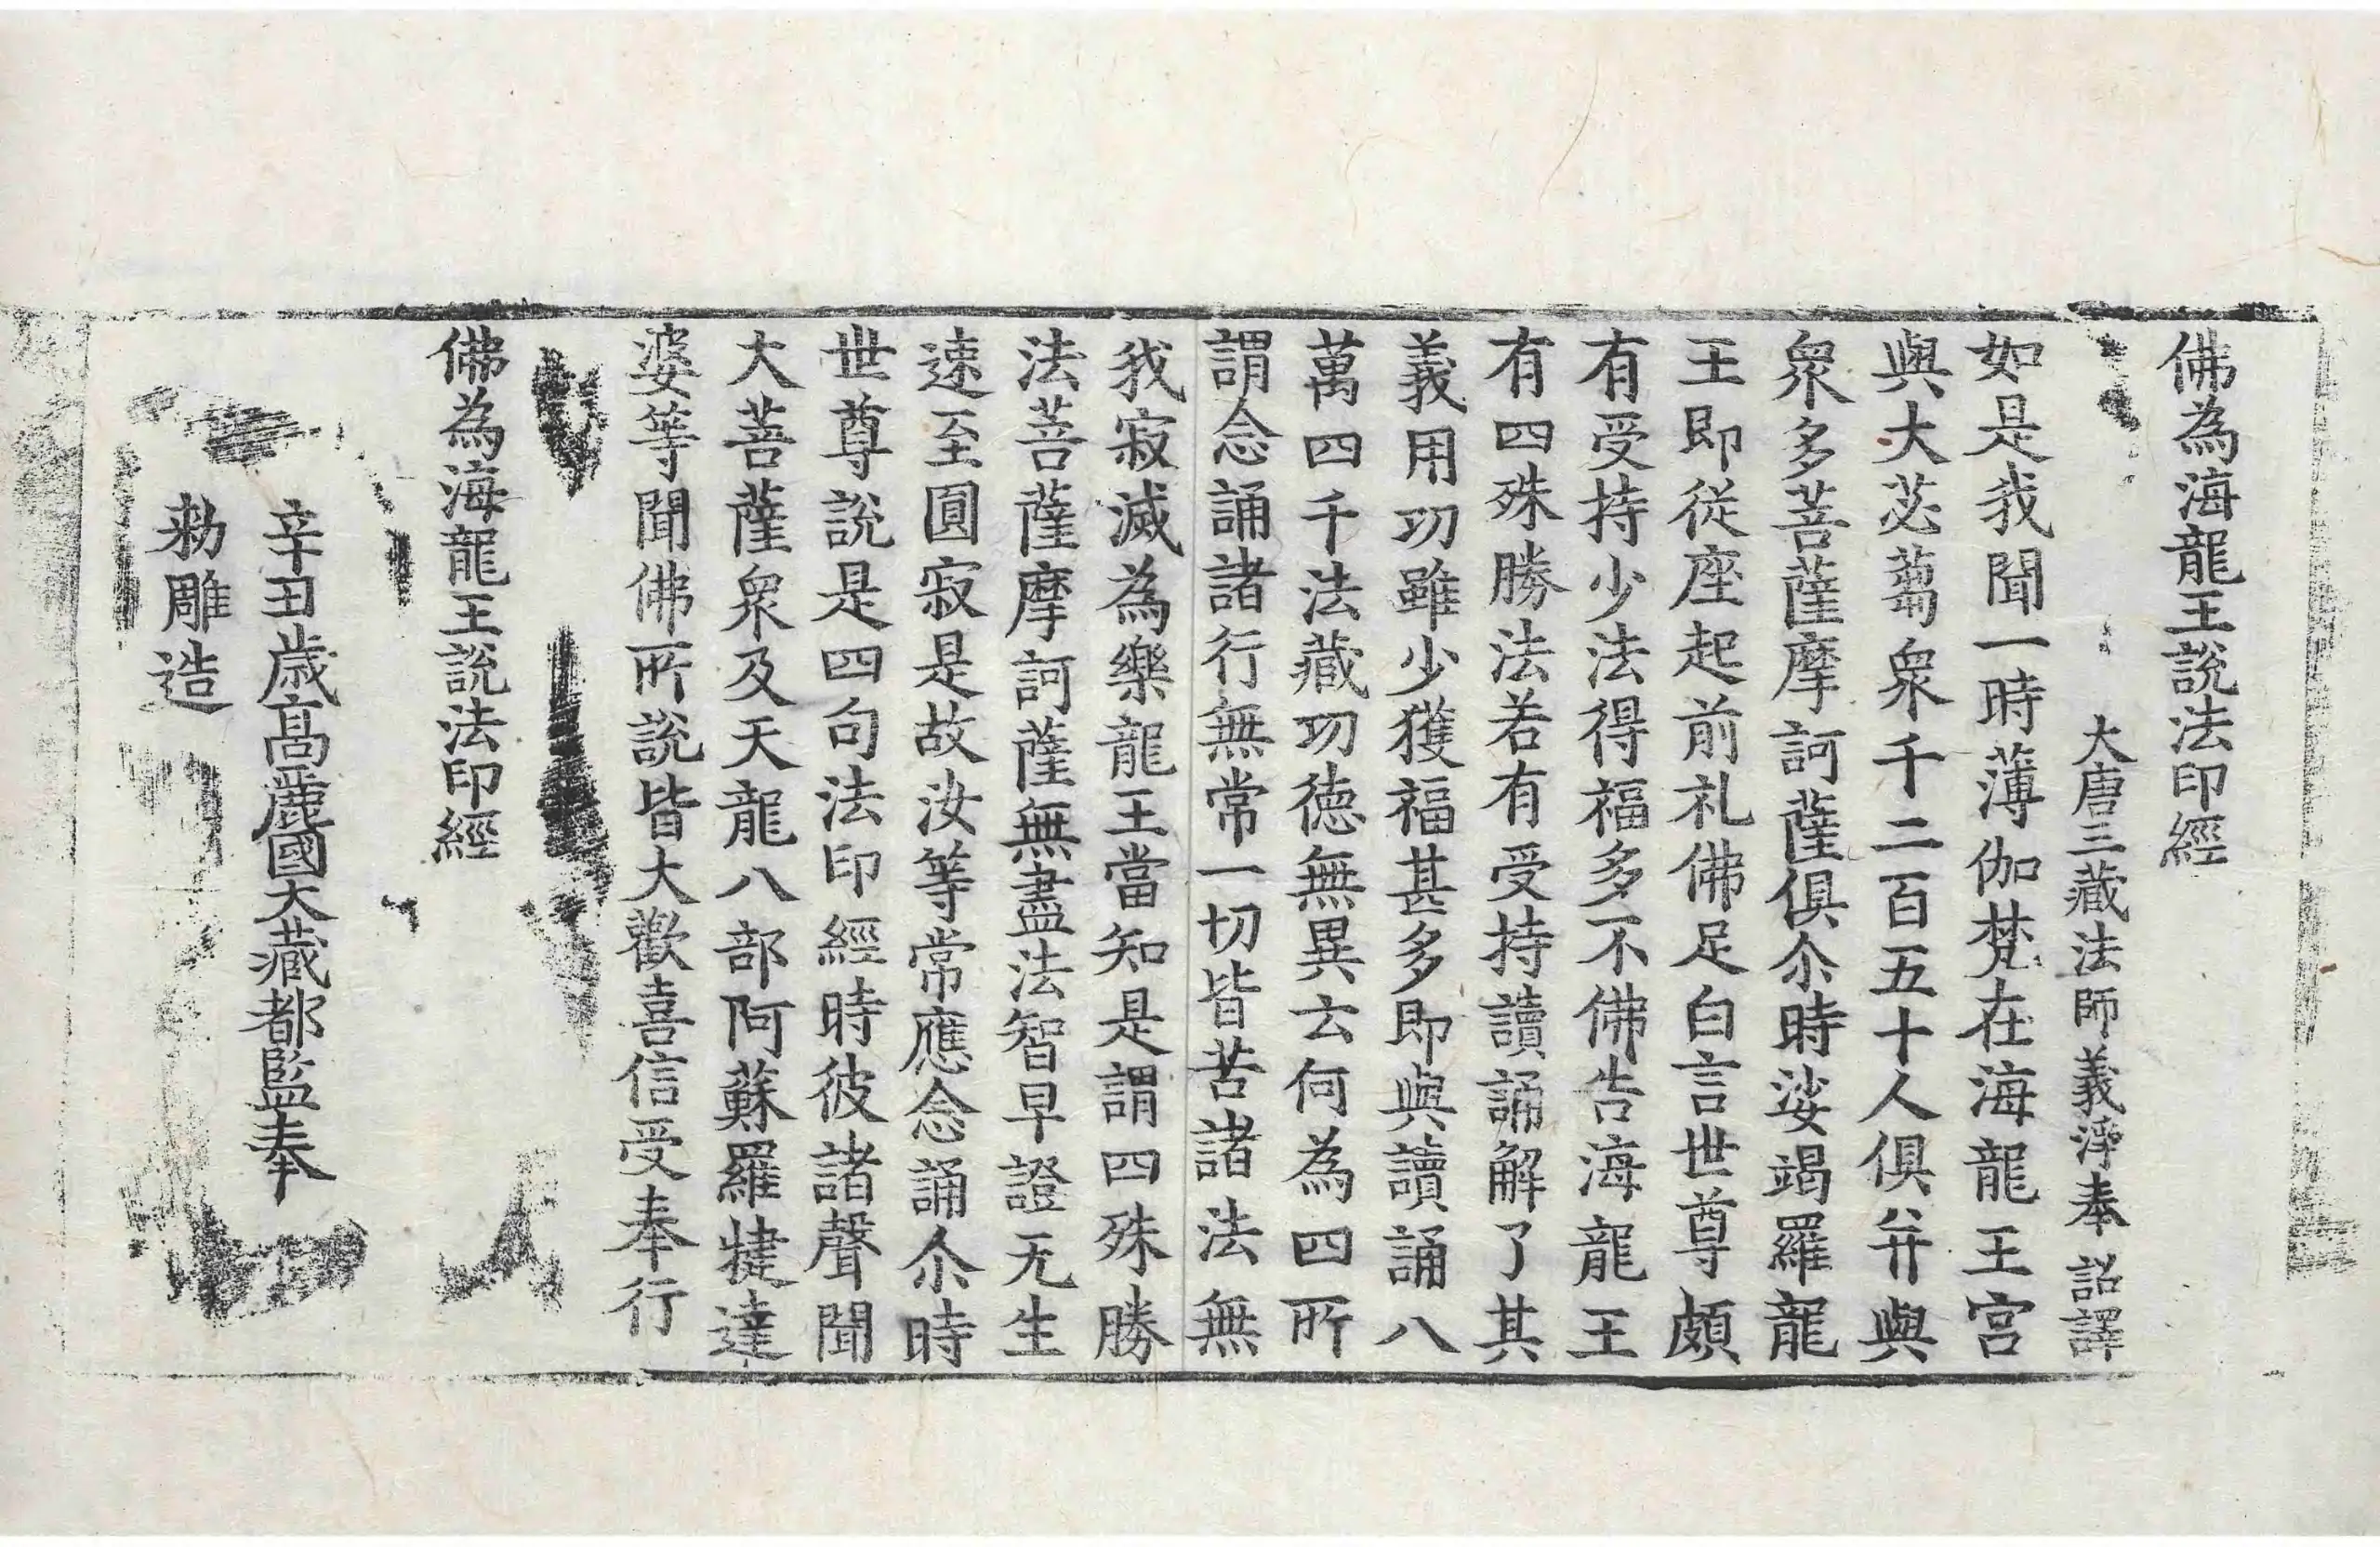 佛為海龍王說法印經
大唐三藏法師義淨奉 詔譯
如是我聞一時薄伽梵在海龍王宮
與大苾蒭眾千二百五十人俱并與
眾多菩薩摩訶薩俱尒時娑竭羅龍
王即從座起前礼佛足白言世尊頗
有受持少法得福多不佛告海龍王
有四殊勝法若有受持讀誦解了其
義用功雖少獲福甚多即與讀誦八
萬四千法藏功德無異云何為四所
謂念誦諸行無常一切皆苦諸法無
我寂滅為樂龍王當知是謂四殊勝
法菩薩摩訶薩無盡法智早證无生
速至圓寂是故汝等常應念誦尒時
世尊說是四句法印經時彼諸聲聞
大菩薩眾及天龍八部阿蘇羅揵達
婆等聞佛所說皆大歡喜信受奉行
佛為海龍王說法印經
辛丑歲高麗國大藏都監奉
勑雕造